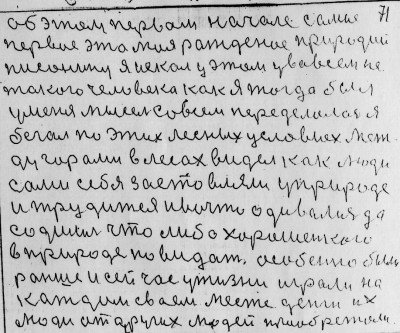 71
об этом первом начале самые
первое эта моя рождение природай
писонину я искал у этом увавсем не
такого человека как я тогда был
у меня мысел совсем переделолася
бегал по этих лесных условиех меж
ду горами в лесах видел как люди
сами себя заставляли у природе
и трудится и во что одивался да
содили что либо хорошенкого
в природе повидат. особенно были
раньше и сей час у жизни играли на
каждом сваем месте денги их
люди от других людей приобретали.